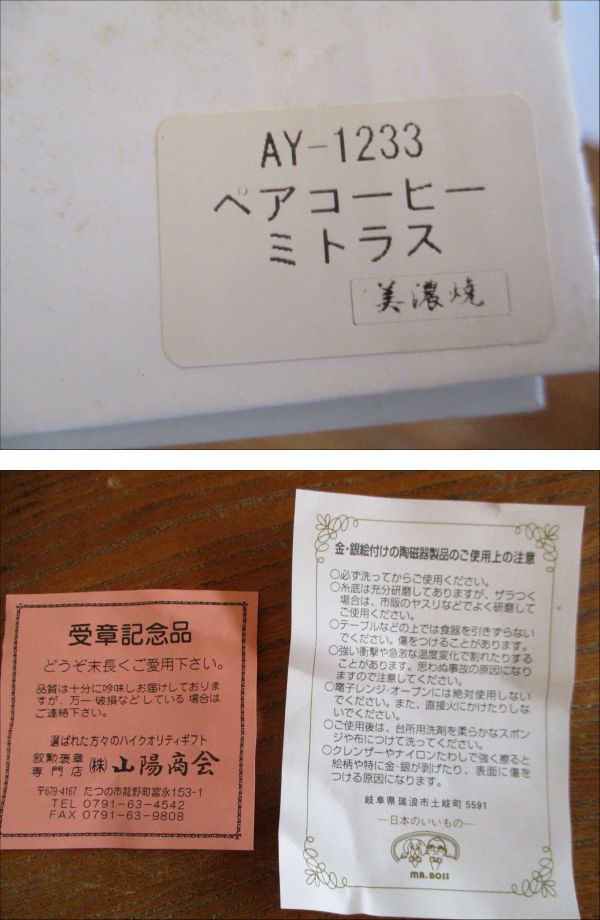 AY-1233
ペアコーヒー
ミトラス
美濃焼
受章記念品
どうぞ末長くご愛用下さい。
品質は十分に吟味しお届けしておりま
すが、万一 破損などしている 場合は
ご連絡下さい。
選ばれた方々のハイクオリティギフト
叙勲褒章
専門店
㈱山陽商会
〒679-4167 たつの市龍野町富永153-1
TEL 0791-63-4542
FAX 0791-63-9808
金・銀絵付けの陶磁器製品のご使用上の注意
○必ず洗ってからご使用ください。
○糸底は充分研磨してありますが、ザラつく
場合は、市販のヤスリなどでよく研磨して
ご使用ください。
○テーブルなどの上では食器を引きずらない
でください。傷をつけることがあります。
○強い衝撃や急激な温度変化で割れたりする
ことがあります。思わぬ事故の原因になり
ますので注意してください。
○電子レンジ・オーブンには絶対使用しない
でください。また、直接火にかけたりしな
いでください。
○ご使用後は、台所用洗剤を柔らかなスポン
ジや布につけて洗ってください。
○クレンザーやナイロンたわしで強く擦ると
絵柄や特に金・銀が剥げたり、表面に傷を
つける原因になります。
岐阜県瑞浪市土岐町 5591
―日本のいいもの―
MR.BOSS